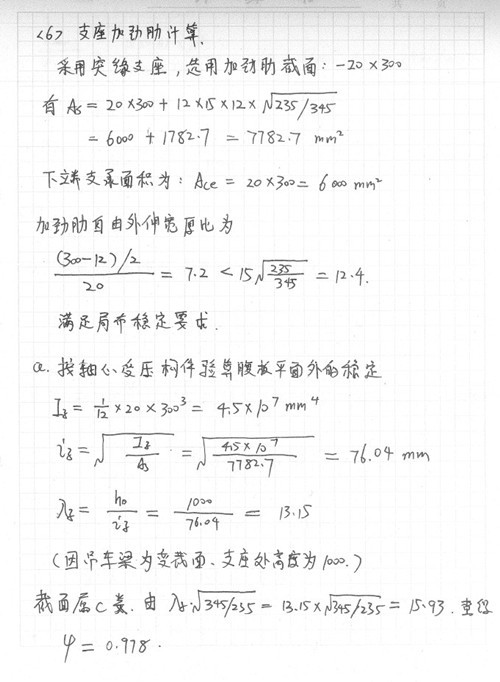 <6> 支座加劲肋计算.
采用突缘支座，选用加劲肋截面：-20×300
有 As = 20×300 + 12×15×12×√235/345
= 6000 + 1782.7 = 7782.7 mm²
下端支承面积为：Ace = 20×300 = 6000 mm²
加劲肋自由外伸宽厚比为
(300-12)/2 / 20 = 7.2 < 15√235/345 = 12.4.
满足局部稳定要求.
a. 按轴心受压构件验算腹板平面外的稳定
Iz = 1/12 × 20 × 300³ = 4.5×10⁷ mm⁴
iz = √Iz/As = √4.5×10⁷/7782.7 = 76.04 mm
λz = h₀/iz = 1000/76.04 = 13.15
(因吊车梁为变截面、支座处高度为1000.)
截面属C类. 由 λz√345/235 = 13.15×√345/235 = 15.93. 查得
φ = 0.978.